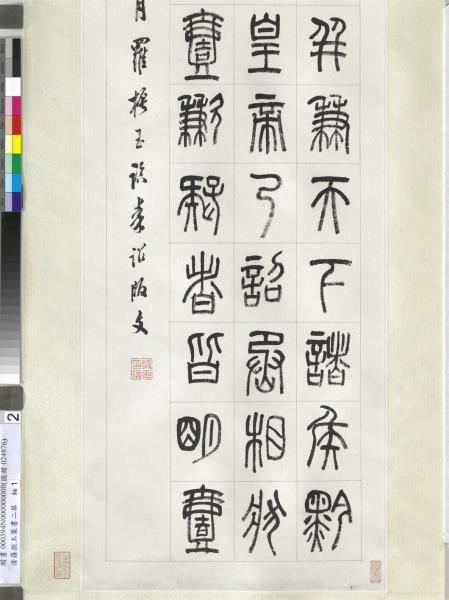 并兼天下諸侯黔
皇帝乃詔丞相狀
壹歉疑者皆明壹
月羅振玉臨秦詔版文
2
贈書 000394N000000000(國贈 024876)